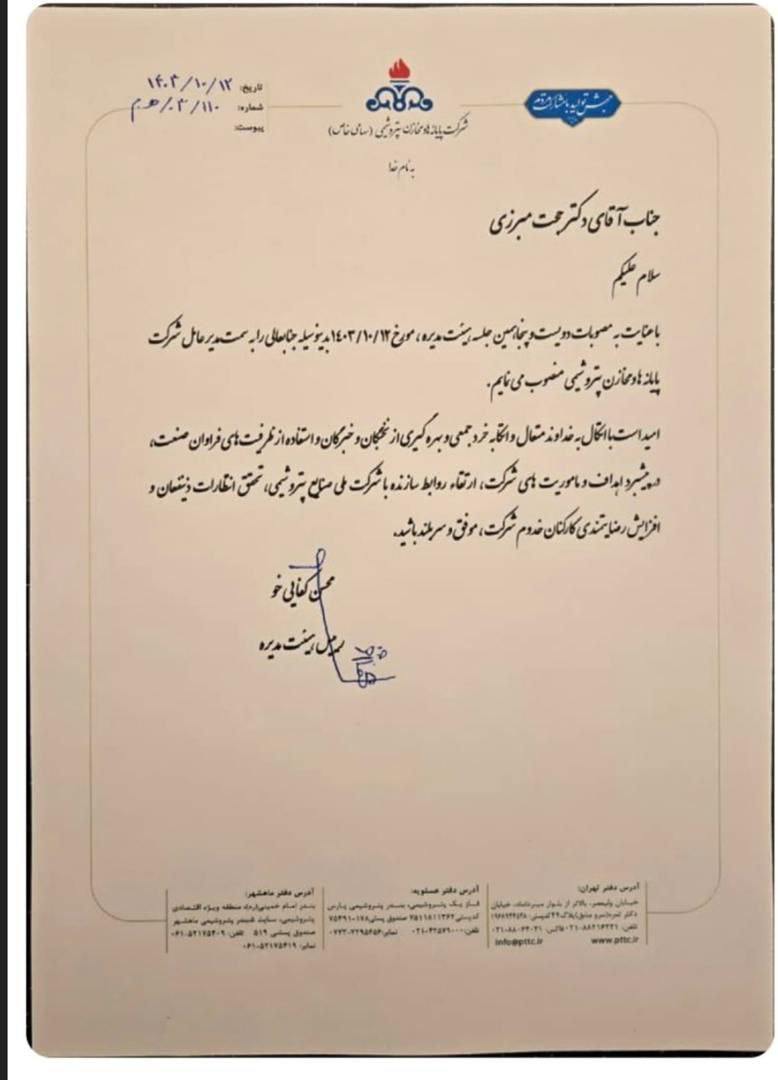 تاریخ: ۱۴۰۳/۱۰/۱۲
شماره: ۱۱۰/۰۳/ه.م
پیوست:
جهش تولید با مشارکت مردم
شرکت پایانه ها و مخازن پتروشیمی (سهامی خاص)
به نام خدا
جناب آقای دکتر حجت میرزی
سلام علیکم
با عنایت به مصوبات دویست و پنجاهمین جلسه هیئت مدیره، مورخ ۱۴۰۳/۱۰/۱۲ بدینوسیله جنابعالی را به سمت مدیر عامل شرکت
پایانه ها و مخازن پتروشیمی منصوب می نمایم.
امید است با اتکال به خداوند متعال و اتکا به خرد جمعی و بهره گیری از نخبگان و خبرگان و استفاده از ظرفیت های فراوان صنعت،
در پیشبرد اهداف و ماموریت های شرکت، ارتقاء روابط سازنده با شرکت ملی صنایع پتروشیمی، تحقق انتظارات ذینفعان و
افزایش رضایتمندی کارکنان خدوم شرکت، موفق و سربلند باشید.
محسن کفایی خو
هیئت مدیره
آدرس دفتر تهران:
خیابان ولیعصر، بالاتر از بلوار میرداماد، خیابان
www.pttc.ir info@pttc.ir
آدرس دفتر عسلویه:
فاز یک پتروشیمی، بندر پتروشیمی پارس
آدرس دفتر ماهشهر:
بندر امام خمینی(ره)، منطقه ویژه اقتصادی
پتروشیمی، سایت ۵ بندر پتروشیمی ماهشهر
صندوق پستی ۵۱۹ تلفن: ۰۶۱-۵۲۱۷۵۴۰۹
نمابر: ۰۶۱-۵۲۱۷۵۴۱۹